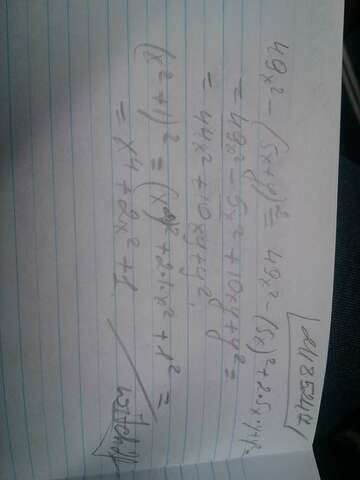 49x² - (5x+y)² = 49x² - (5x)² + 2·5x·y+y² =
= 49x² - 5x² + 10xy + y² =
= 44x² + 10xy + y²
(x² + 1)² = (x²)² + 2·1·x² + 1² =
= x4 + 2x² + 1